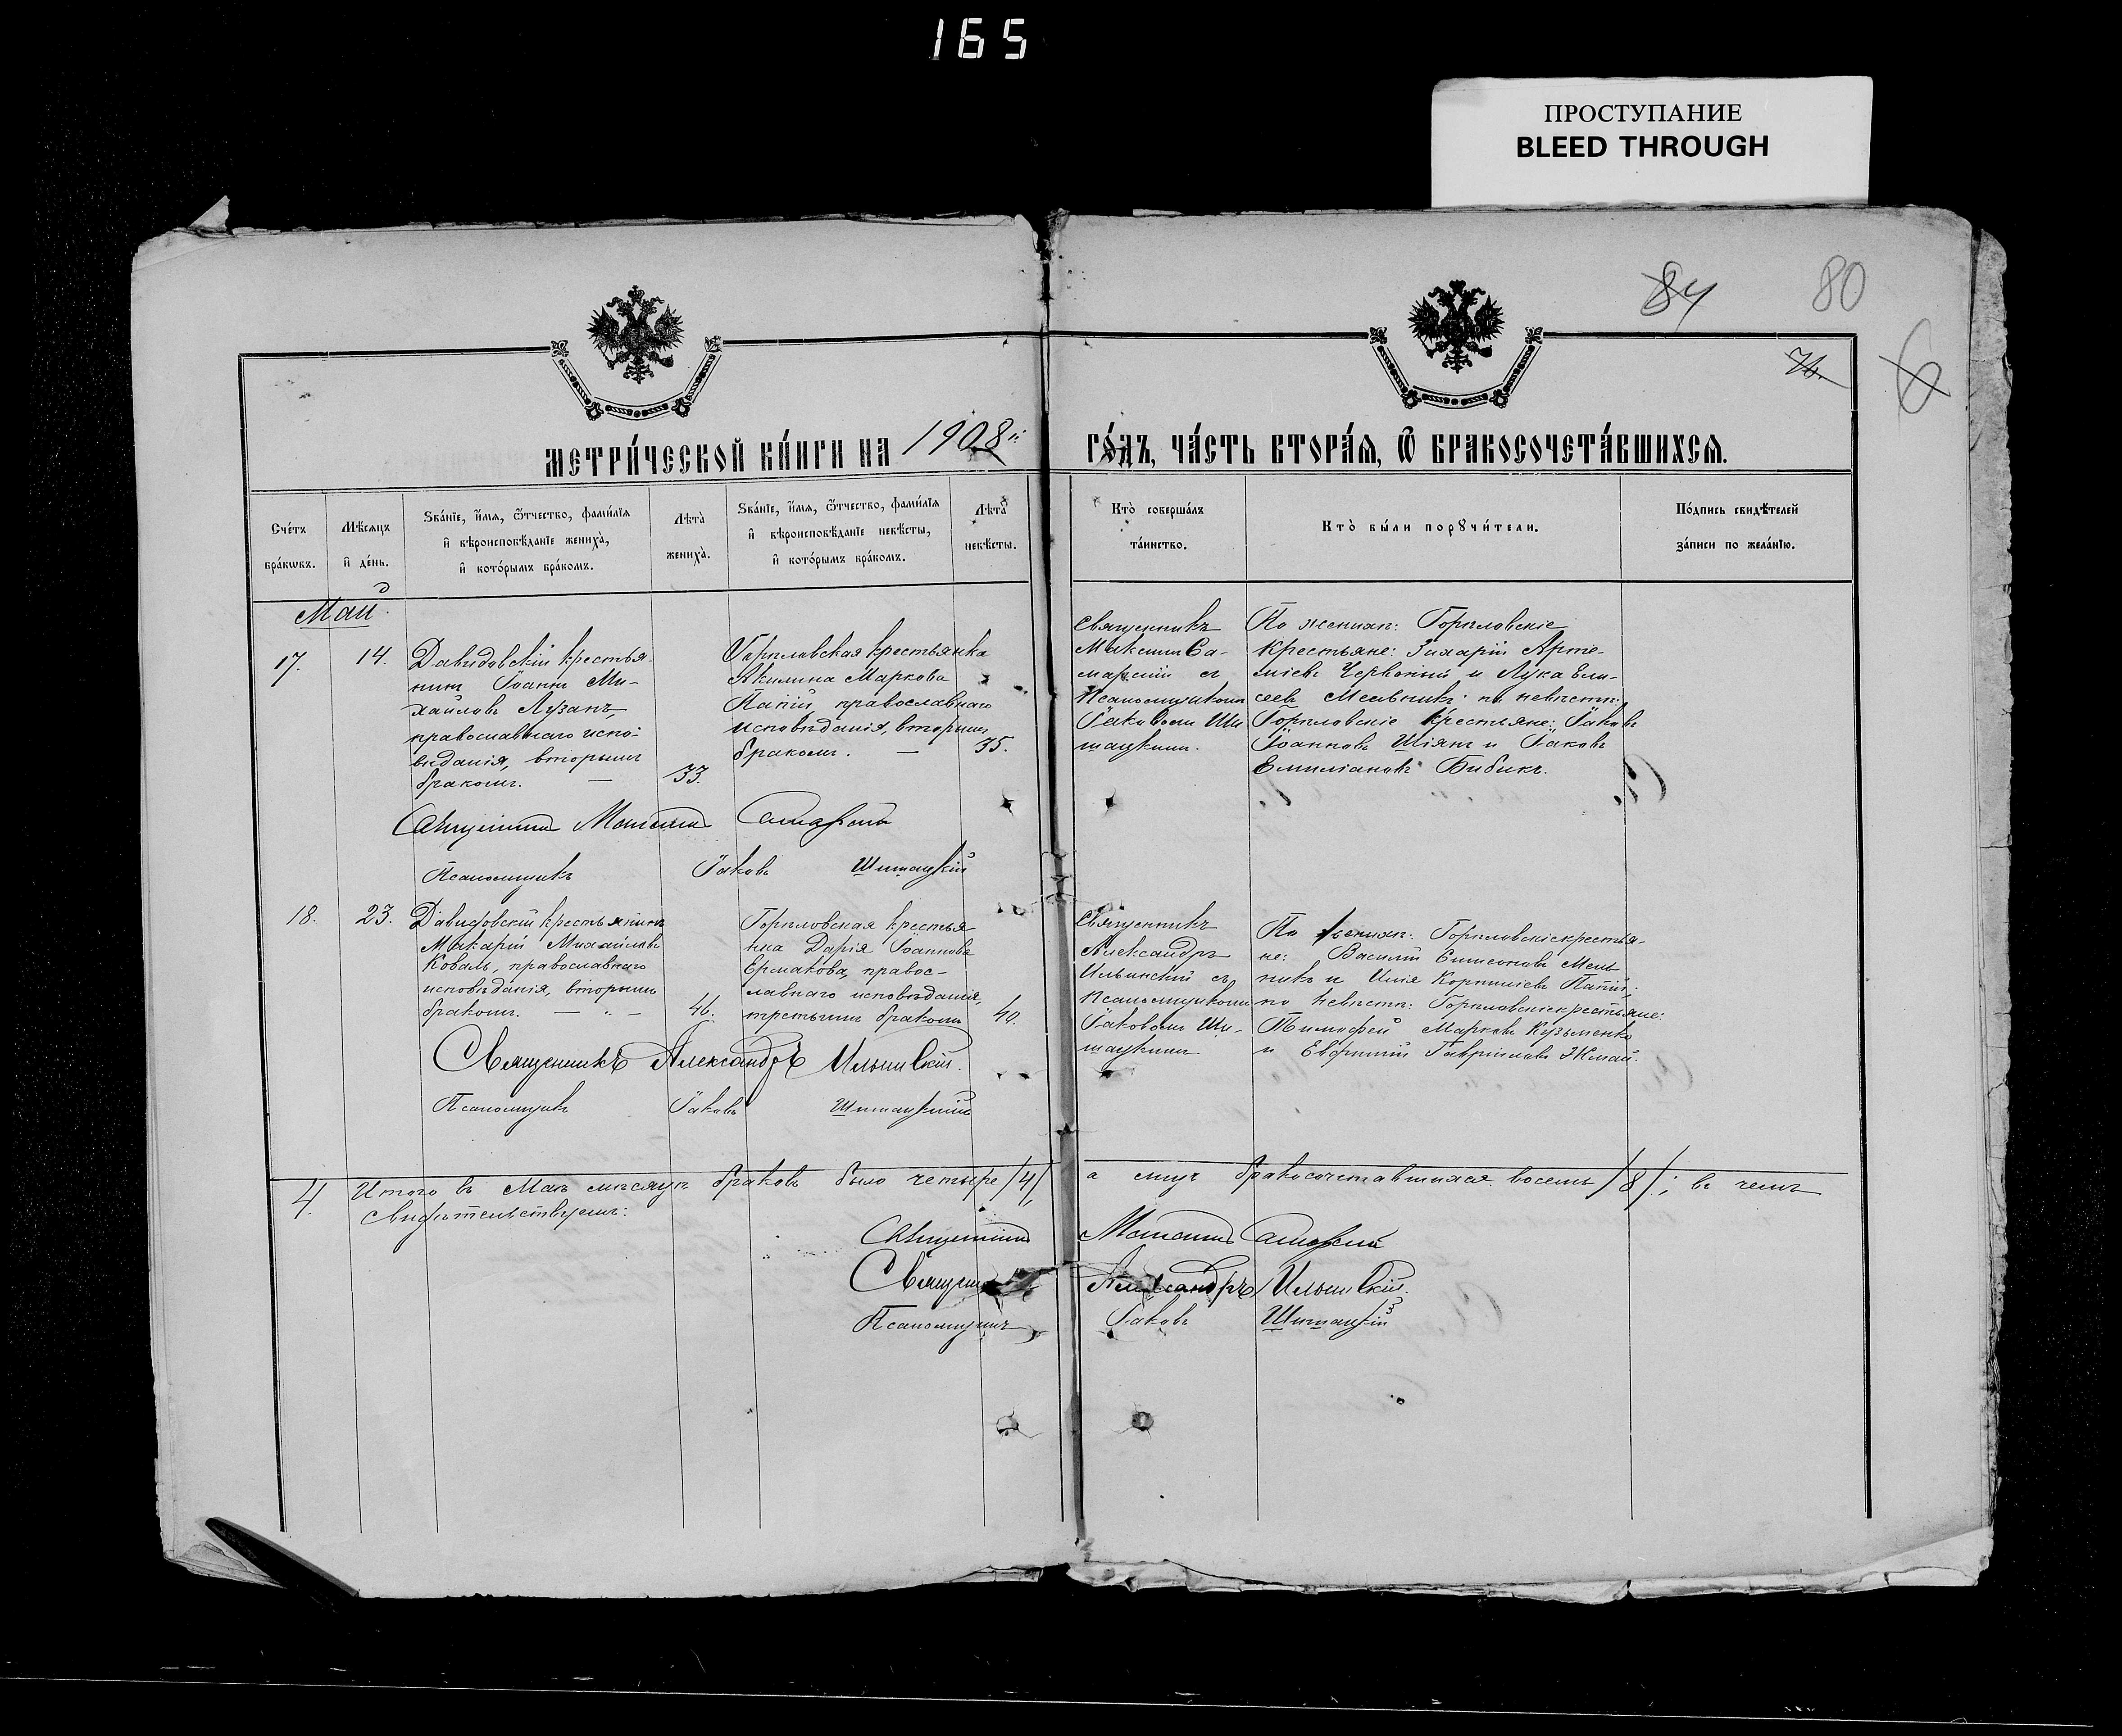 165
ПРОСТУПАНИЕ
BLEED THROUGH
84 80
76.
6
МЕТРИ́ЧЕСКОЙ КНИ́ГИ НА 1908й ГО́ДЪ, ЧА́СТЬ ВТОРА́Я, Ѿ БРАКОСОЧЕТА́ВШИХСЯ.
Сче́тъ
бра́кѡвъ.
Мѣ́сяцъ
и҆ де́нь.
Зва́нїе, и҆́мя, ѻ҆́тчество, фами́лїя
и҆ вѣроисповѣ́данїе жениха̀,
и҆ кото́рымъ бра́комъ.
Лѣта̀
жениха̀.
Зва́нїе, и҆́мя, ѻ҆́тчество, фами́лїя
и҆ вѣроисповѣ́данїе невѣ́сты,
и҆ кото́рымъ бра́комъ.
Лѣта̀
невѣ́сты.
Кто̀ соверша́лъ
та́инство.
Кто̀ бы́ли порꙋчи́тели.
По́дпись свидѣ́телей
за́писи по жела́нїю.
Май
17.
14.
Давидовскій крестья-
нинъ Іоаннъ Ми-
хайловъ Лузанъ,
православнаго испо-
вѣданія, вторымъ
бракомъ. —
33.
Горѣловская крестьянка
Акилина Маркова
Папій, православнаго
исповѣданія, вторымъ
бракомъ. —
35.
Священникъ
Максимъ Са-
марскій съ
Псаломщикомъ
Іаковомъ Ши-
шацкимъ.
По женихѣ: Горѣловскіе
крестьяне: Захарій Арте-
міевъ Червоный и Лука Ели-
сеевъ Мельникъ; по невѣстѣ:
Горѣловскіе крестьяне: Іаковъ
Іоанновъ Шіянъ и Іаковъ
Емиліановъ Бибикъ.
Священникъ Максимъ Самарскій
Псаломщикъ Іаковъ Шишацкій
18.
23.
Давидовскій крестьянинъ
Макарій Михайловъ
Коваль, православнаго
исповѣданія, вторымъ
бракомъ. — " —
46.
Горѣловская крестья-
нка Дарія Іоаннова
Ермакова, правос-
лавнаго исповѣданія,
третьимъ бракомъ
40.
Священникъ
Александръ
Ильинскій съ
Псаломщикомъ
Іаковомъ Ши-
шацкимъ
По женихѣ: Горѣловскіе крестья-
не: Василій Симеоновъ Мель-
никъ и Илія Корниліевъ Папій;
по невѣстѣ: Горѣловскіе крестьяне:
Тимофей Марковъ Кузьменко
и Евфимій Гавріиловъ
Священникъ Александръ Ильинскій.
Псаломщикъ Іаковъ Шишацкій
4.
Итого въ Маѣ мѣсяцѣ браковъ было четыре /4/, а лицъ бракосочетавшихся восемь /8/; въ чемъ
свидѣтельствуемъ:
Священникъ Максимъ Самарскій
Священникъ Александръ Ильинскій.
Псаломщикъ Іаковъ Шишацкій